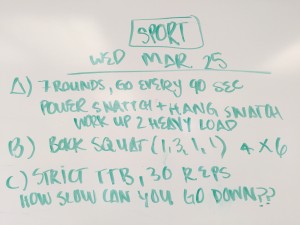 SPORT
WED MAR 25
A) 7 ROUNDS, GO EVERY 90 SEC
POWER SNATCH + HANG SNATCH
WORK UP 2 HEAVY LOAD
B) BACK SQUAT (1, 3, 1, 1) 4 x 6
C) STRICT TTB, 30 REPS
HOW SLOW CAN YOU GO DOWN??